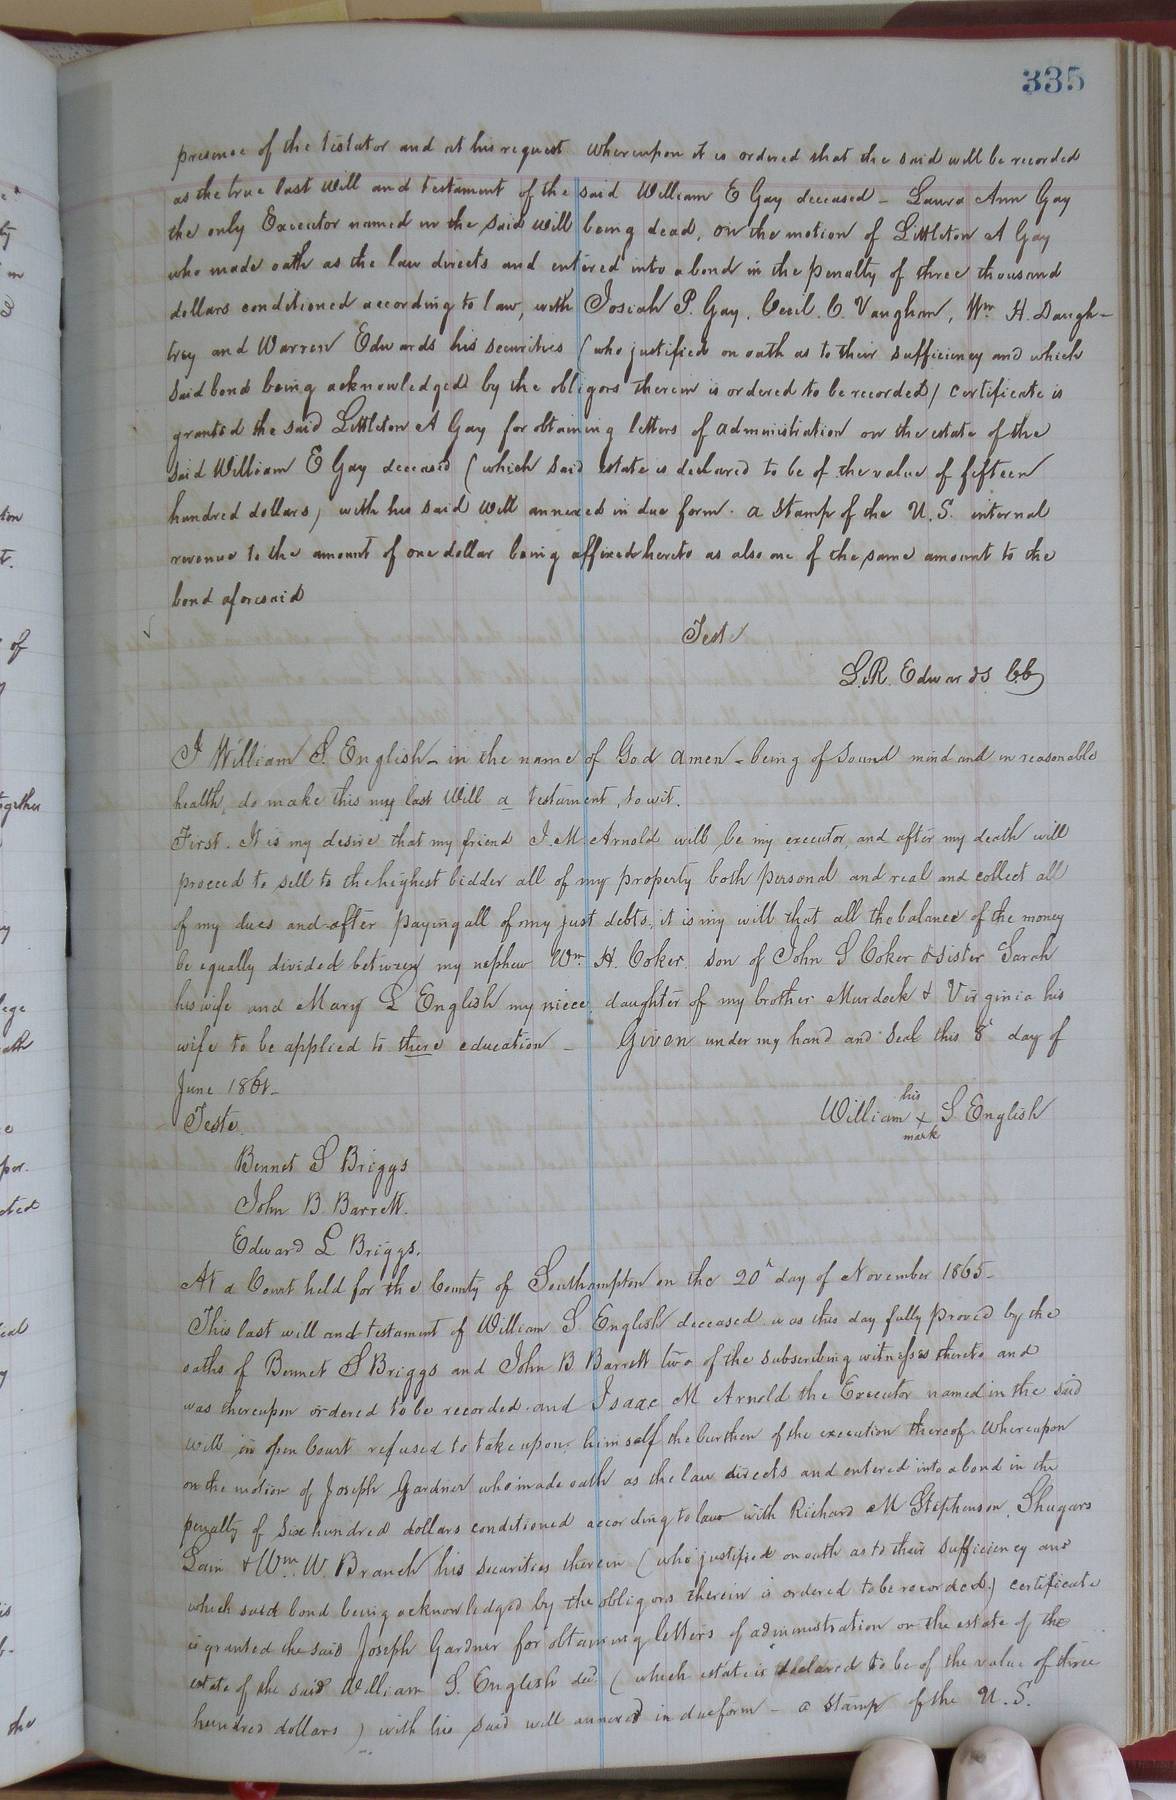 335
presence of the testator and at his request whereupon it is ordered that the said will be recorded
as the true last will and testament of the said William E Gay deceased - Laura Ann Gay
the only Executor named in the said will being dead, on the motion of Littleton A Gay
who made oath as the law directs and entered into a bond in the penalty of three thousand
dollars conditioned according to law, with Josiah P. Gay, Cecil. C. Vaughan, Wm H. Daugh-
trey and Warren Edwards his securities (who justified on oath as to their sufficiency and which
said bond being acknowledged by the obligors therein is ordered to be recorded) certificate is
granted the said Littleton A Gay for obtaining letters of administration on the estate of the
said William E Gay deceased (which said estate is declared to be of the value of fifteen
hundred dollars) with his said will annexed in due form. a stamp of the U.S. internal
revenue to the amount of one dollar being affixed hereto as also one of the same amount to the
bond aforesaid
Teste
L.R. Edwards CC
I William S. English - in the name of God amen - being of sound mind and in reasonable
health, do make this my last will a testament, to wit.
First. It is my desire that my friend I. M. Arnold will be my executor, and after my death will
proceed to sell to the highest bidder all of my property both personal and real and collect all
of my dues and after paying all of my just debts, it is my will that all the balance of the money
be equally divided between my nephew Wm H. Coker son of John S Coker & sister Sarah
his wife and Mary L English my niece, daughter of my brother Murdock & Virginia his
wife to be applied to there education - Given under my hand and seal this 8 day of
June 1861-
Teste. William his x mark S English
Bennet S Briggs
John B. Barrett.
Edward L Briggs.
At a Court held for the County of Southampton on the 20h day of November 1865-
This last will and testament of William S. English deceased was this day fully proved by the
oaths of Bennet S Briggs and John B Barrett two of the subscribing witnesses thereto and
was thereupon ordered to be recorded and Isaac M Arnold the Executor named in the said
will in open Court refused to take upon himself the burthen of the execution thereof. Whereupon
on the motion of Joseph Gardner who made oath as the law directs and entered into a bond in the
penalty of six hundred dollars conditioned according to law with Richard M Stephenson, Shugars
Lain & Wm. W. Branch his securities therein (who justified on oath as to their sufficiency and
which said bond being acknowledged by the obligors therein is ordered to be recorded.) certificate
is granted the said Joseph Gardner for obtaining letters of administration on the estate of the
estate of the said William S. English decd (which estate is declared to be of the value of three
hundred dollars) with his said will annexed in due form - a stamp of the U.S.